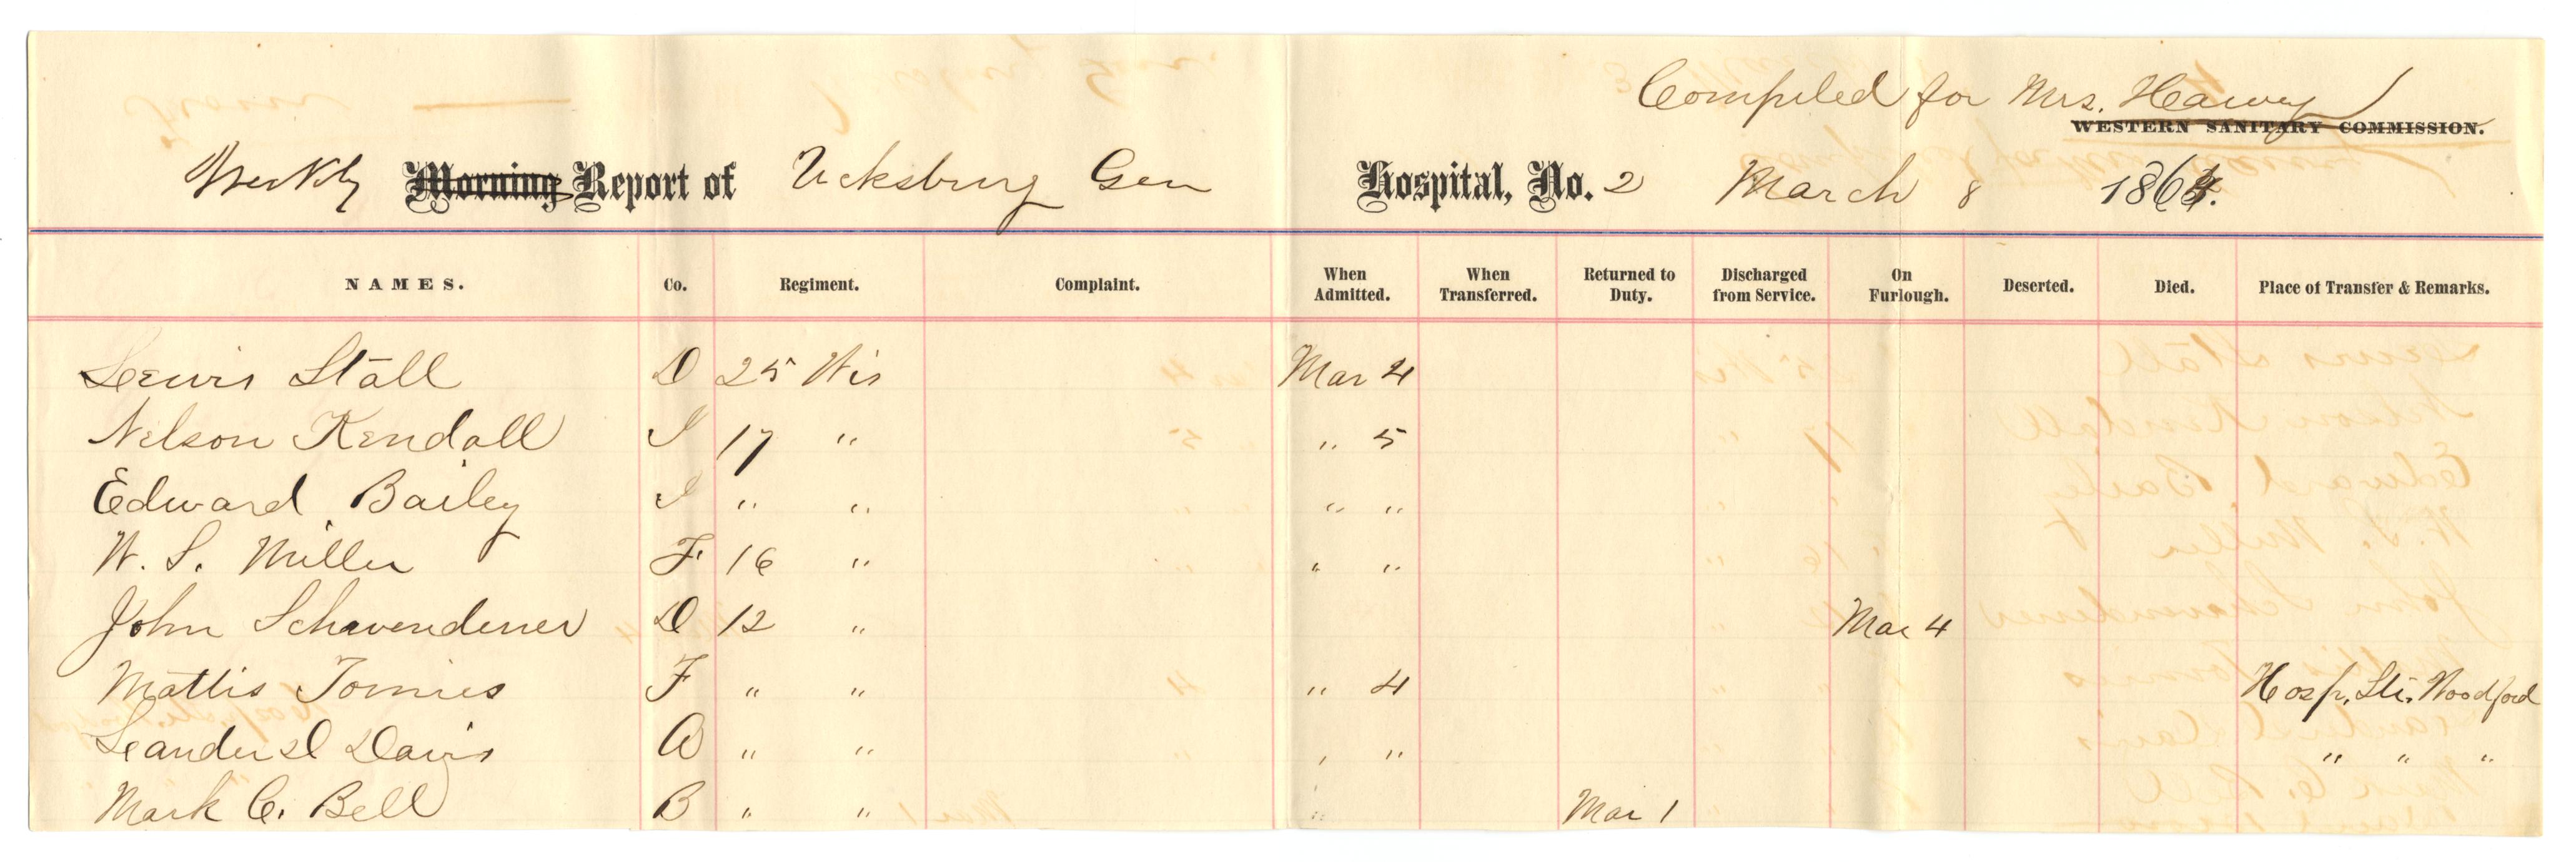 Compiled for Mrs. Harvey
WESTERN SANITARY COMMISSION.
Weekly Morning Report of Vicksburg Gen Hospital, No. 2 March 8 1864.
NAMES. Co. Regiment. Complaint. When Admitted. When Transferred. Returned to Duty. Discharged from Service. On Furlough. Deserted. Died. Place of Transfer & Remarks.
Lewis Stall D 25 Wis Mar 4
Nelson Kendall I 17 " " 5
Edward Bailey I " " " "
W. S. Miller F 16 " " "
John Schavendener D 12 " Mar 4
Mattis Tomies F " " " 4 Hosp. Str. Woodford
Leander D Davis " " " " " " "
Mark C. Bell B " " " Mar 1